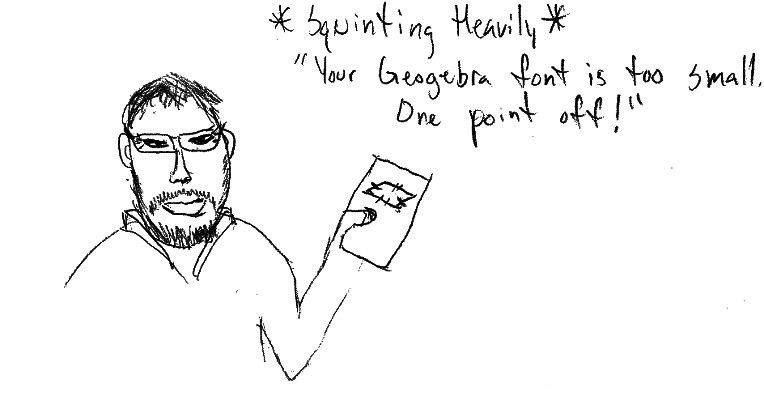 * Squinting Heavily *
"Your Geogebra font is too small.
One point off!"